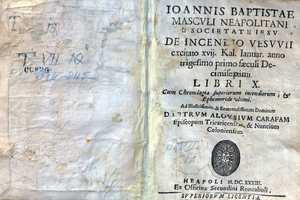 IOANNIS BAPTISTAE
MASCVLI NEAPOLITANI
E SOCIETATE IESV
DE INCENDIO VESVVII
excitato xvij. Kal. Ianuar. anno
trigesimo primo sæculi De-
cimiseptimi
LIBRI X.
Cum Chronologia superiorum incendiorum; &
Ephemeride ultimi.
Ad Illustrissimum, & Reuerendissimum Dominum
D. PETRVM ALOYSIVM CARAFAM
Episcopum Tricaricensem, & Nuntium
Coloniensem.
NEAPOLI M.DC.XXXIII.
Ex Officina Secundini Roncalioli.
SVPERIORVM LICENTIA.